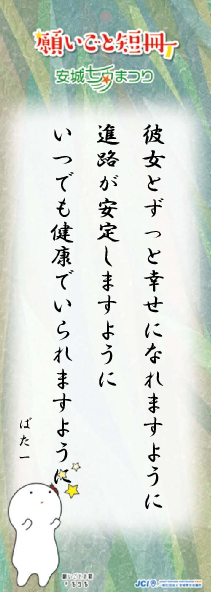 願いごと短冊
安城七夕まつり
彼女とずっと幸せになれますように
進路が安定しますように
いつでも健康でいられますように
ばたー
JCI